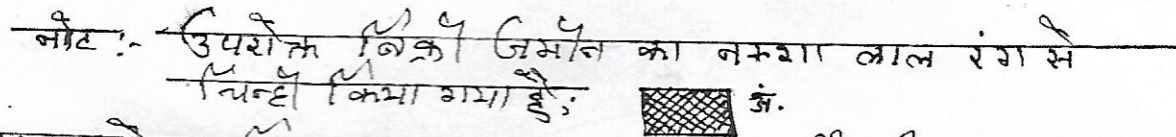 नोट:- उपरोक्त बिक्री जमीन का नक्शा लाल रंग से
चिन्हो किया गया है;